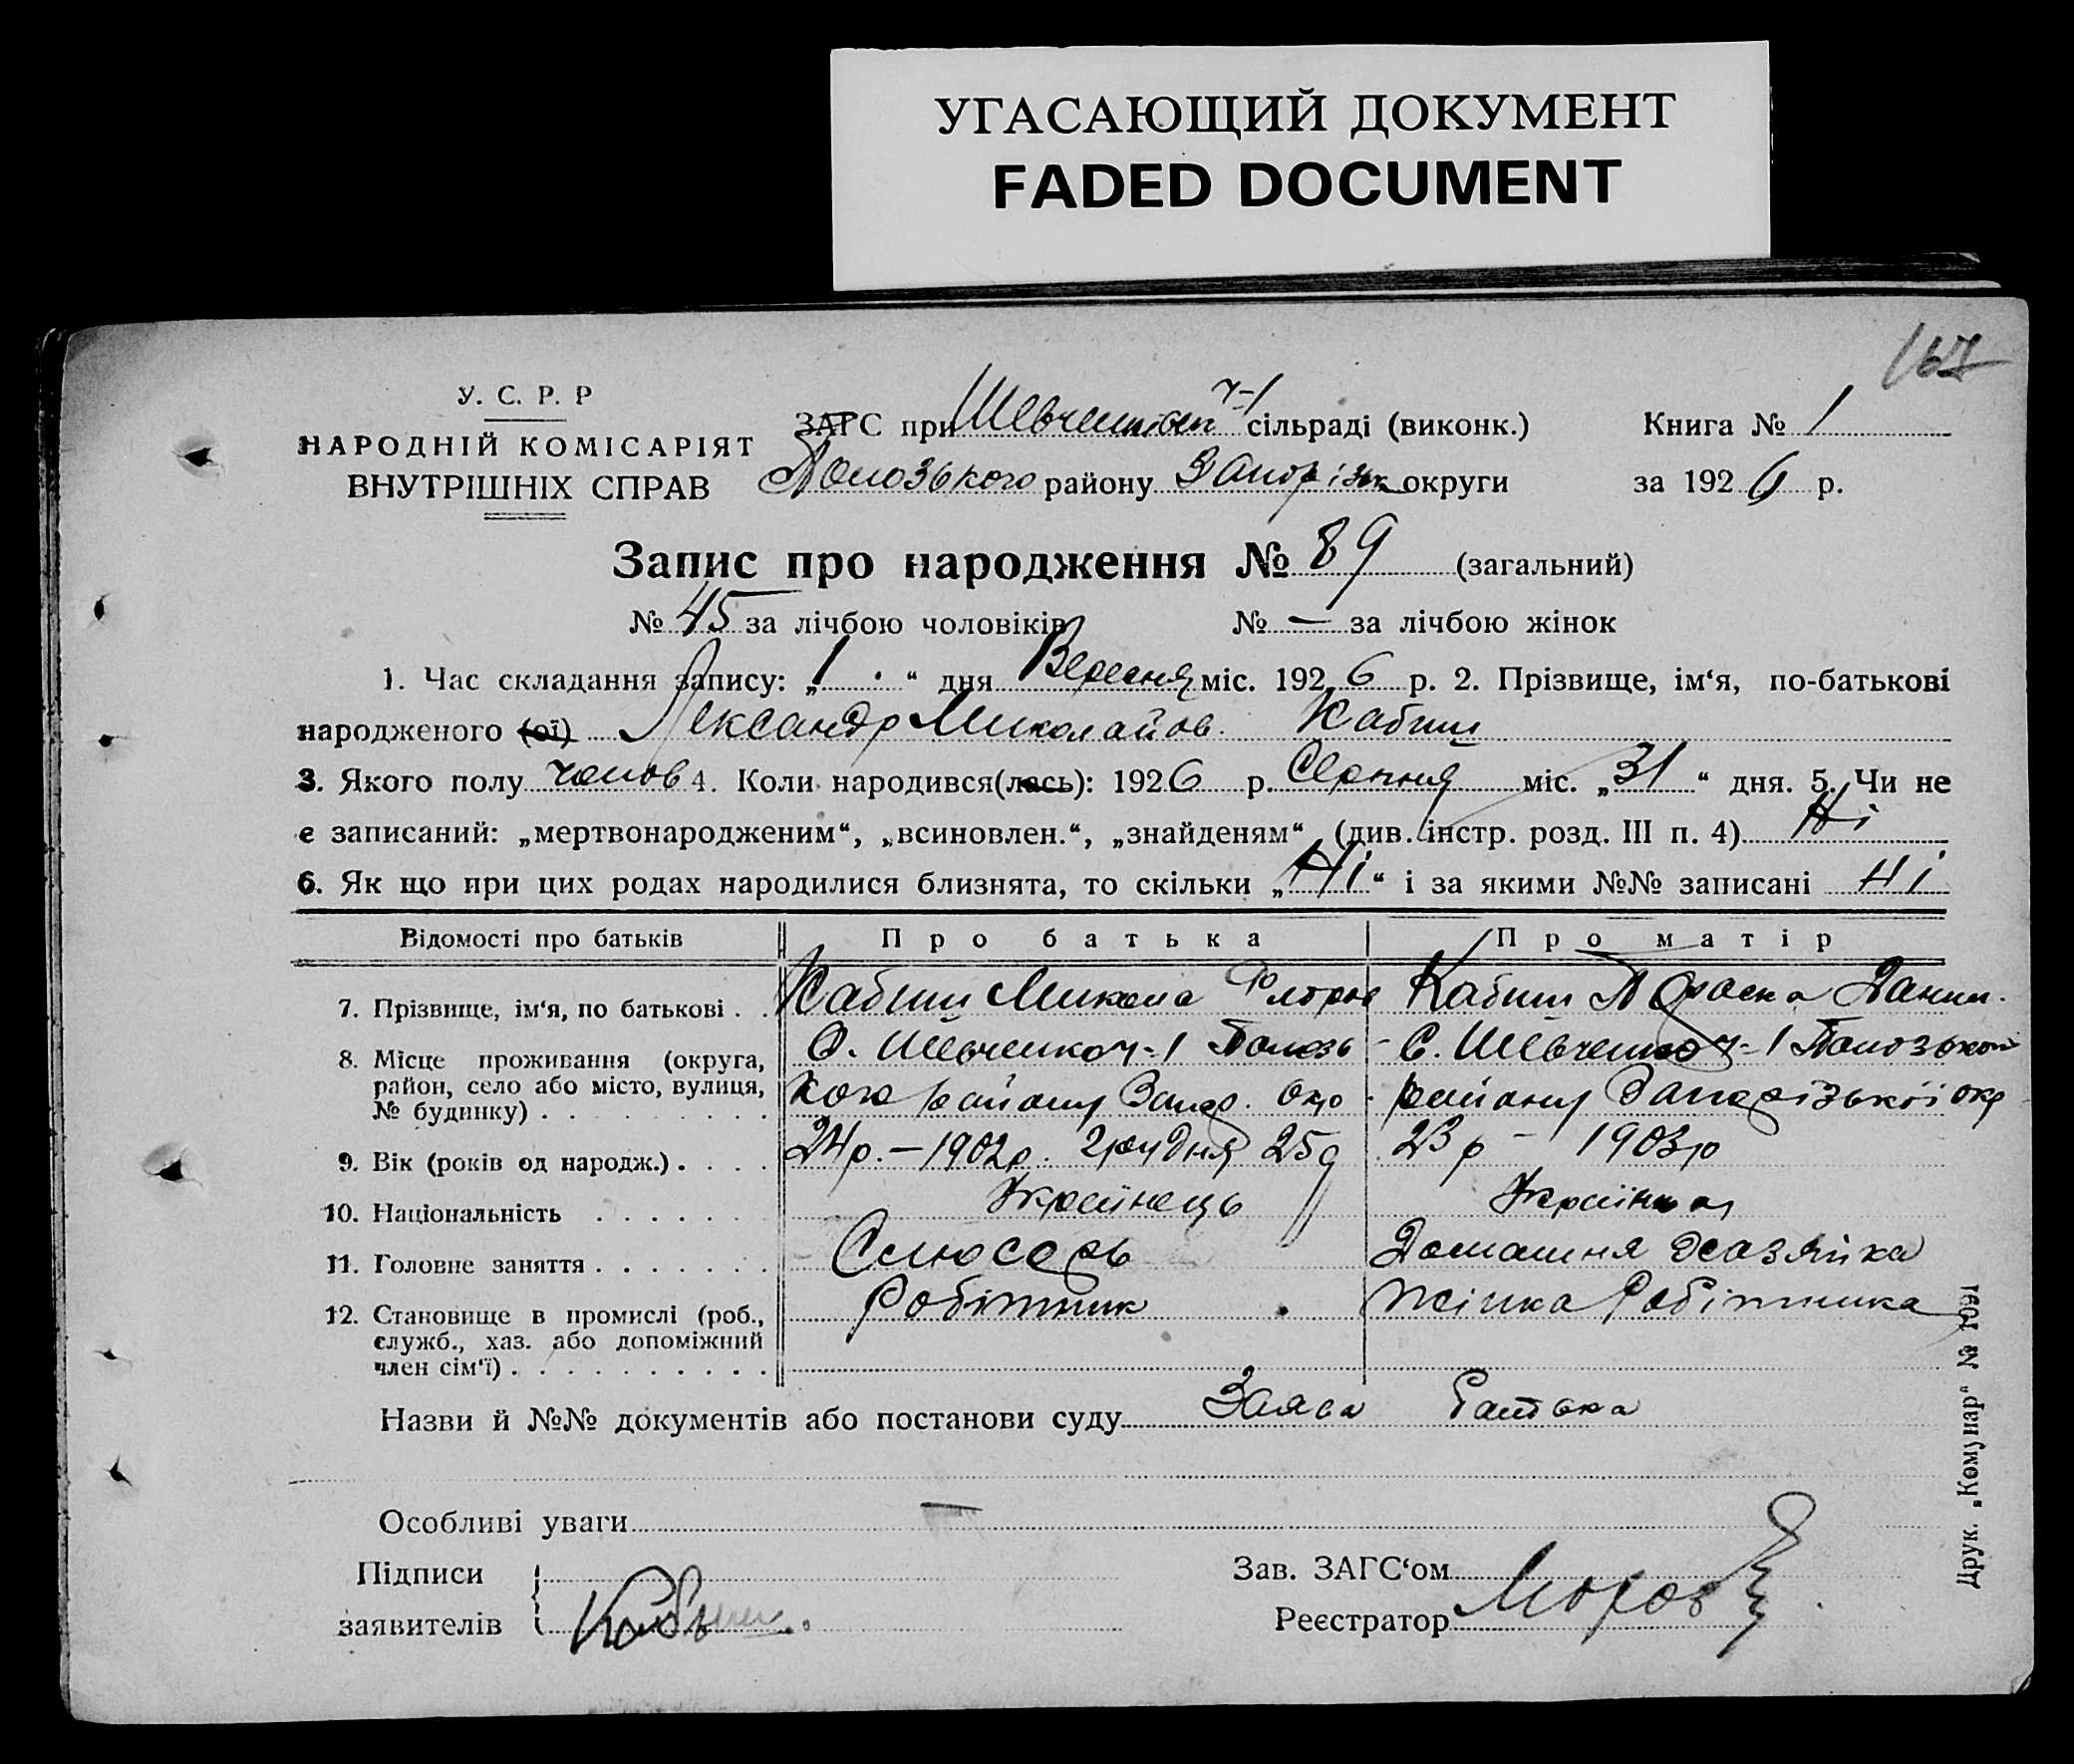 УГАСАЮЩИЙ ДОКУМЕНТ
FADED DOCUMENT
167
У. С. Р. Р
НАРОДНІЙ КОМІСАРІЯТ
ВНУТРІШНІХ СПРАВ
ЗАГС при Шевченківск ч-1 сільраді (виконк.)
Полозького району Запоріжк округи
Книга № 1
за 1926 р.
Запис про народження № 89 (загальний)
№ 45 за лічбою чоловіків № — за лічбою жінок
1. Час складання запису: „1“ дня Вересня міс. 1926 р. 2. Прізвище, ім‘я, по-батькові
народженого (ої) Лександр Миколайов. Кабиш
3. Якого полу чолов 4. Коли народився(лась): 1926 р. Серпня міс. „31“ дня. 5. Чи не
є записаний: „мертвонародженим“, „всиновлен.“, „знайденям“ (див. інстр. розд. III п. 4) Ні
6. Як що при цих родах народилися близнята, то скільки „Ні“ і за якими №№ записані Ні
Відомості про батьків Про батька Про матір
7. Прізвище, ім‘я, по батькові . . Кабиш Микола Флоров Кабиш Параска Данил.
8. Місце проживання (округа, С. Шевченко ч-1 Полозь- С. Шевченко ч-1 Полозького
район, село або місто, вулиця, кого району Запор. окр. району Запорізької окр
№ будинку) . . . . . . . . .
9. Вік (років од народж.) . . . . 24р. — 1902р. грудня 25д 23р — 1903р
10. Національність . . . . . . Українець Українка
11. Головне заняття . . . . . . . Слюсарь Домашня хазяйка
12. Становище в промислі (роб., Робітник Жінка Робітника
служб., хаз. або допоміжний
член сім‘ї) . . . . . . . . . .
Назви й №№ документів або постанови суду Заява Батька
Особливі уваги —
Підписи
заявителів Кабыш.
Зав. ЗАГС‘ом
Реєстратор Мороз
Друк. „Комунар“ № 1091